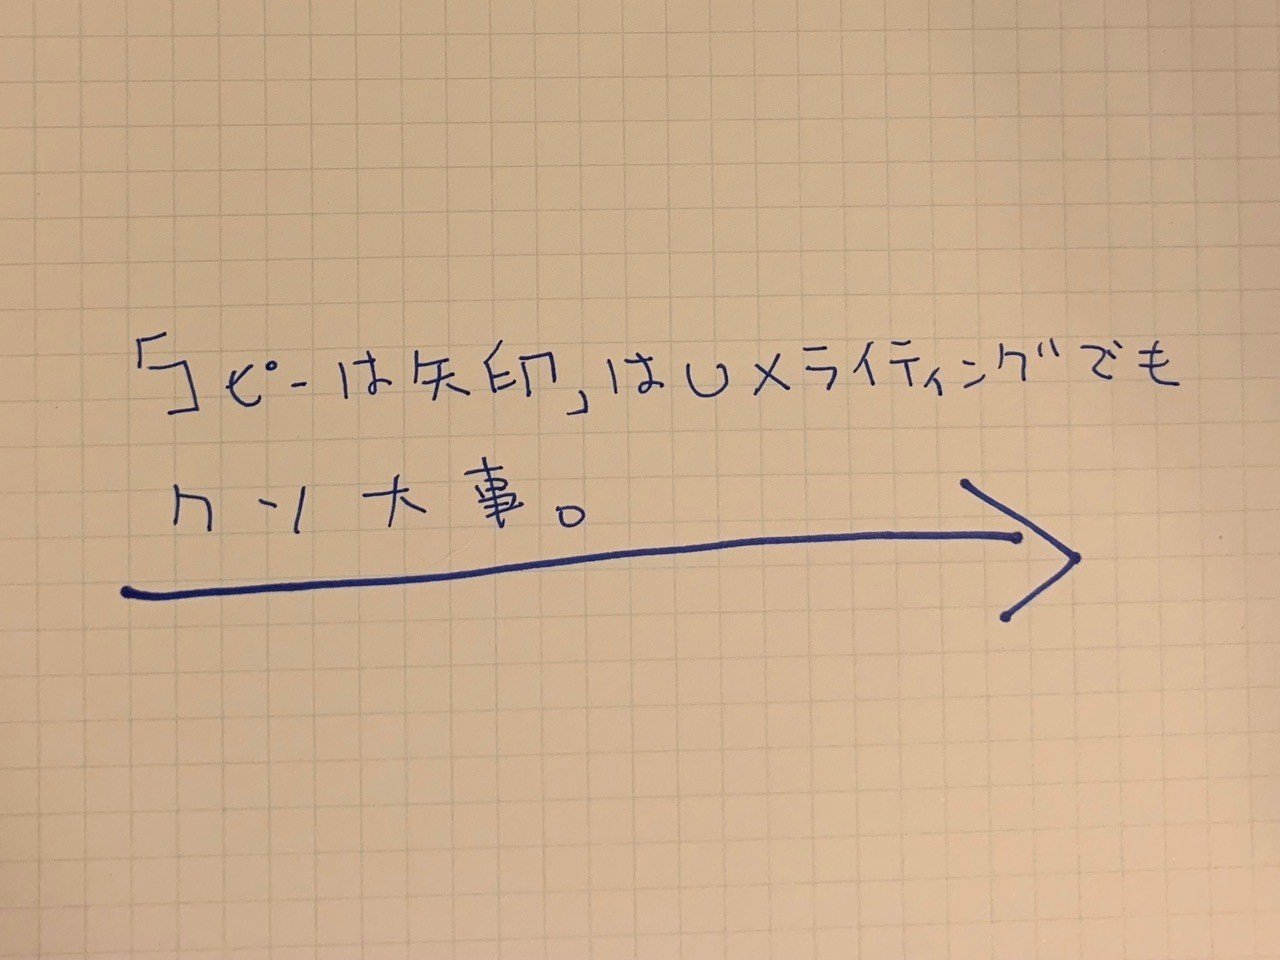 「コピーは矢印」はUXライティングでも
クソ大事。